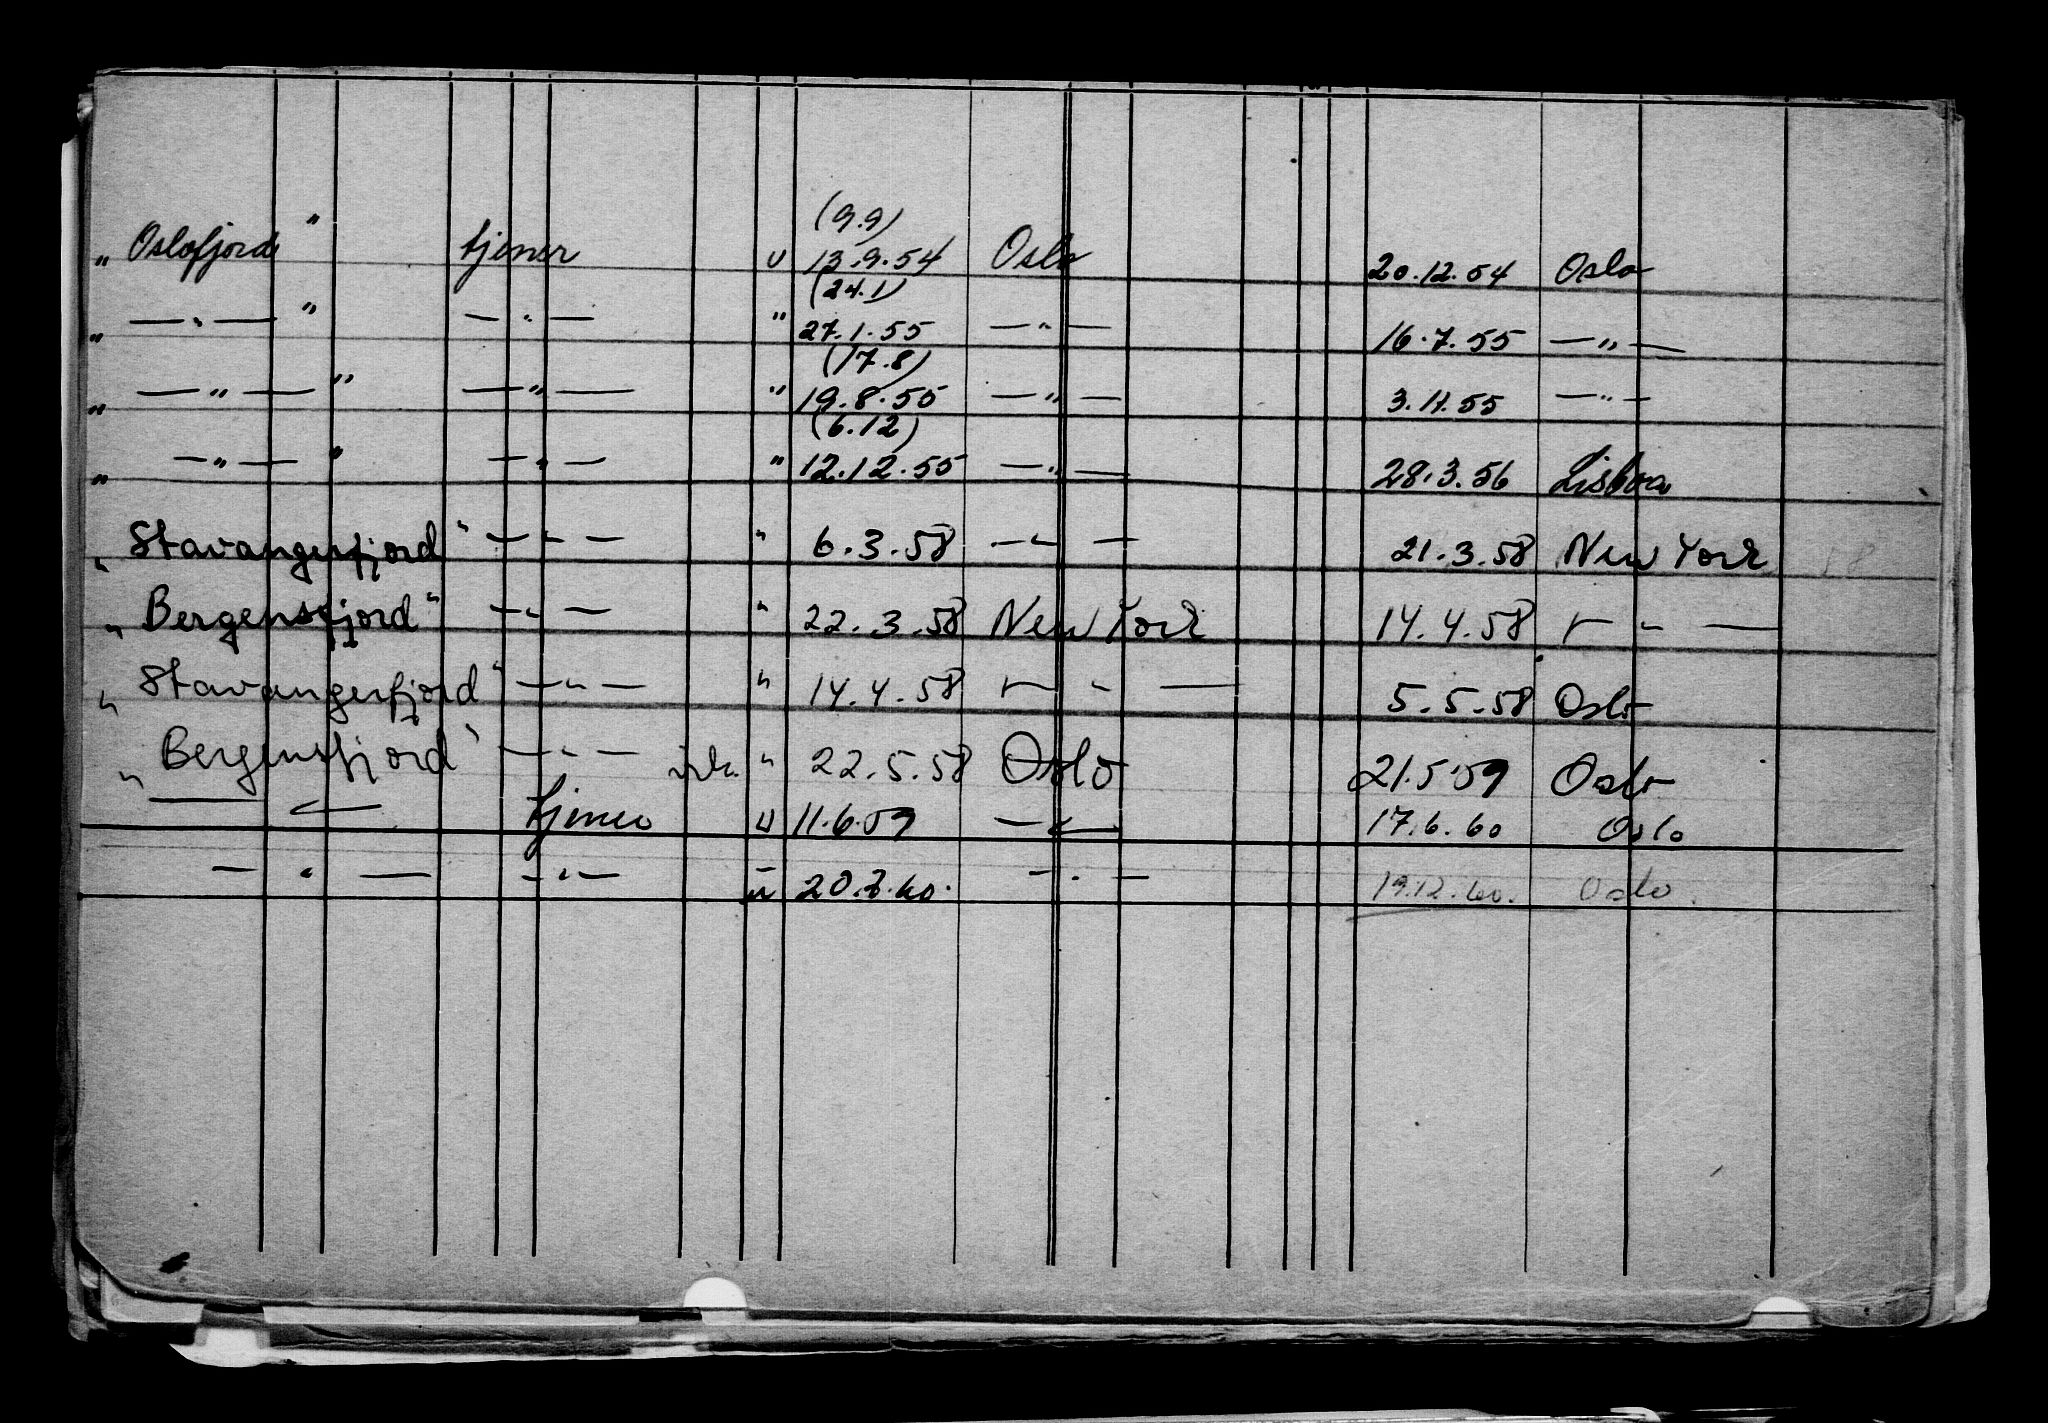 (9.9)
„ Oslofjord " tjener u 13.9.54 Oslo 20.12.54 Oslo
(24.1)
„ — „ — " — „ — " 27.1.55 — „ — 16.7.55 — „ —
(17.8)
„ — „ — " — „ — " 19.8.55 — „ — 3.11.55 — „ —
(6.12)
„ — „ — " — „ — " 12.12.55 — „ — 28.3.56 Lisboa
„ Stavangerfjord " — „ — " 6.3.58 — „ — 21.3.58 New York
„ Bergensfjord " — „ — " 22.3.58 New York 14.4.58 — „ —
„ Stavangerfjord " — „ — " 14.4.58 — „ — 5.5.58 Oslo
„ Bergensfjord " — „ — " 22.5.58 Oslo 21.5.59 Oslo
— „ — tjener u 11.6.59 — „ — 17.6.60 Oslo
— „ — — „ — u 20.7.60. — „ — 19.12.60. Oslo.